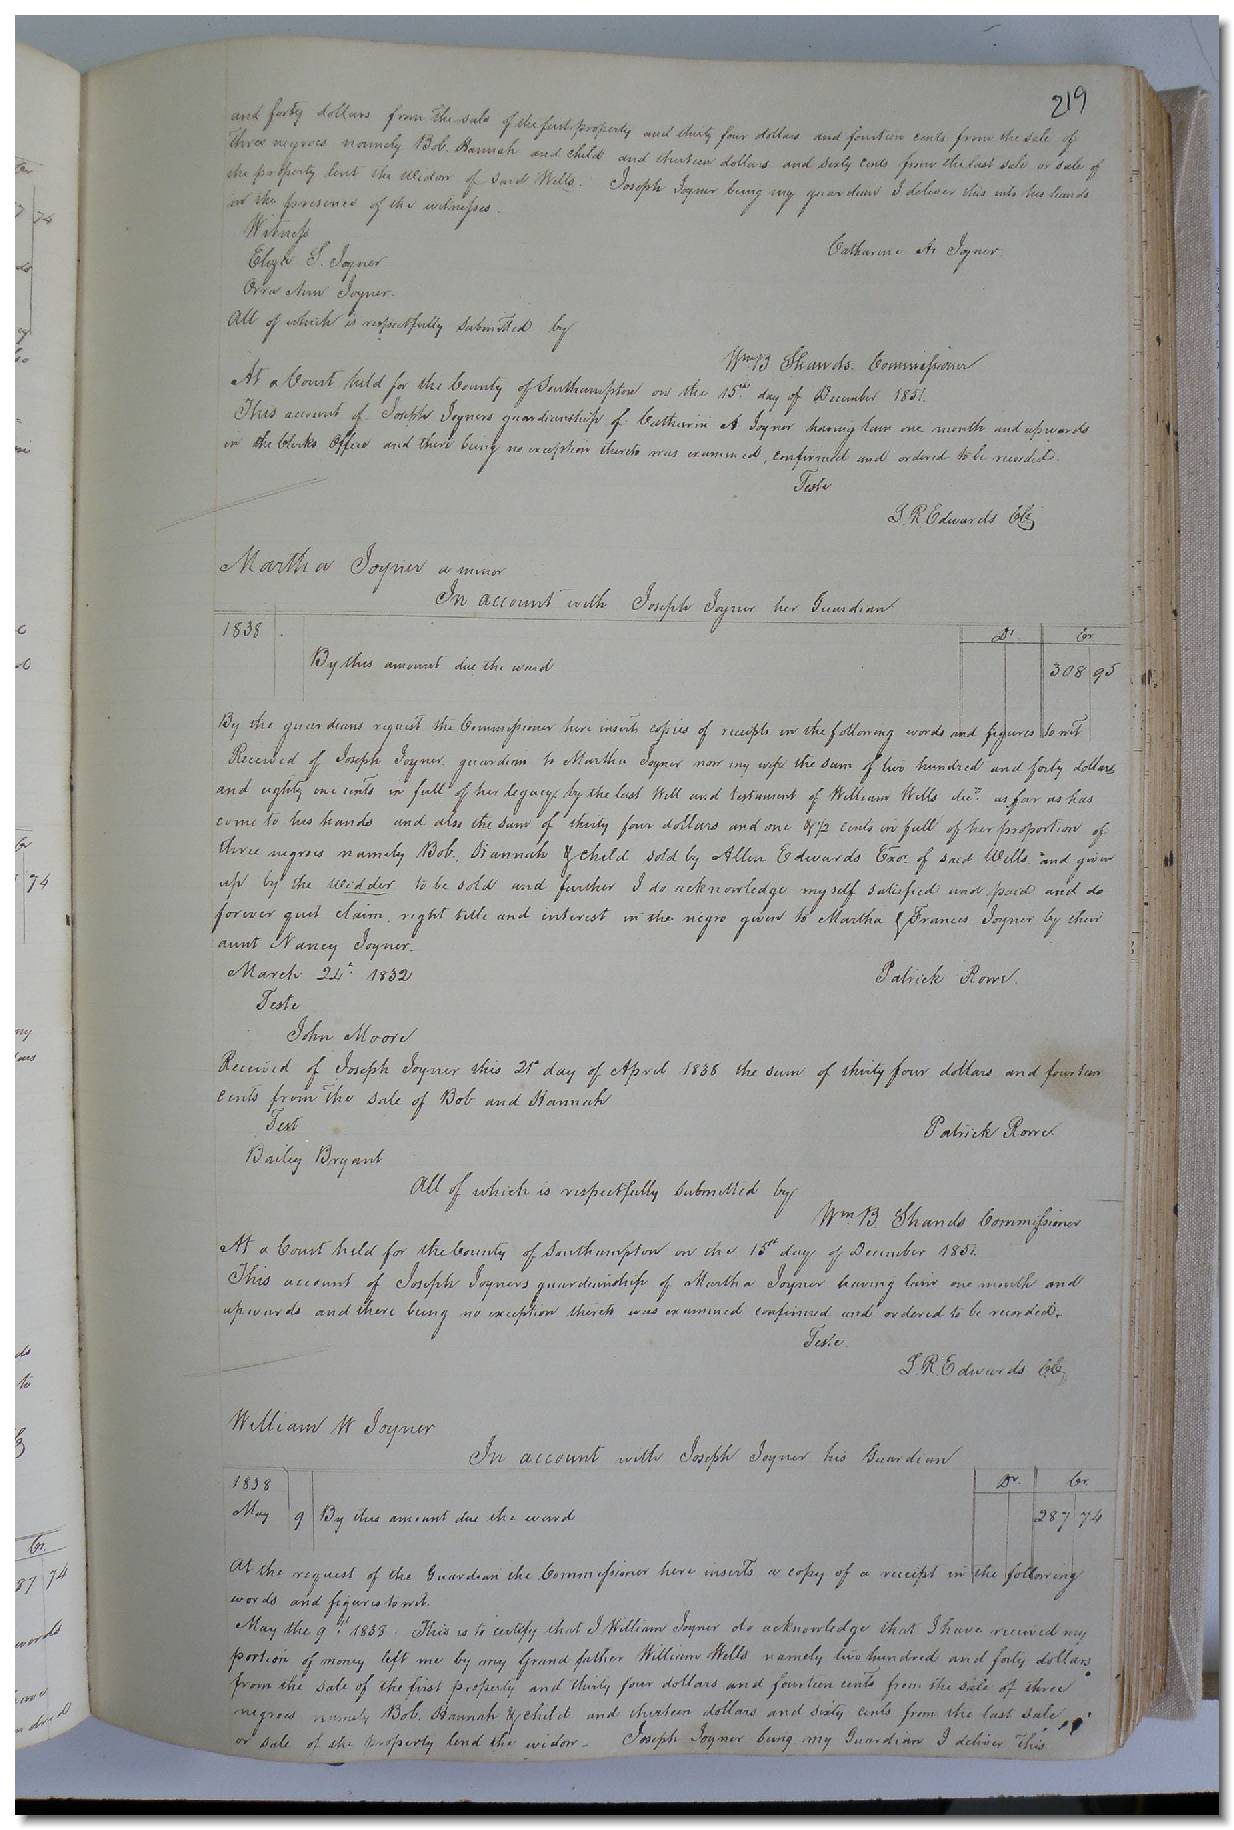 219
and forty dollars from the sale of the first property and thirty four dollars and fourteen cents from the sale of
three negroes namely Bob, Hannah and child and thirteen dollars and sixty cents from the last sale or sale of
the property lent the Widow of said Wills. Joseph Joyner being my guardian I deliver this into his hands
in the presence of the witnesses.
Witness
Catharine A. Joyner
Eliza S. Joyner
Orra Ann Joyner.
All of which is respectfully submitted by
Wm B Shands. Commissioner
At a Court held for the County of Southampton on the 15th day of December 1851.
This account of Joseph Joyners guardianship of Catharin A Joyner having lain one month and upwards
in the Clerks Office and there being no exception thereto was examined, confirmed and ordered to be recorded.
Teste
L. R. Edwards Clk
Martha Joyner a minor
In account with Joseph Joyner her Guardian
1838
Dr Cr
By this amount due the ward 308 95
By the guardians request the Commissioner here inserts copies of receipts in the following words and figures to wit
Received of Joseph Joyner guardian to Martha Joyner now my wife the sum of two hundred and forty dollars
and eighty one cents in full of her legacy by the last Will and testament of William Wills decd. as far as has
come to his hands and also the sum of thirty four dollars and one & 1/2 cents in full of her proportion of
three negroes namely Bob, Hannah & child sold by Allen Edwards Exor. of said Wills and given
up by the Widder to be sold and further I do acknowledge myself satisfied and paid and do
forever quit claim, right title and interest in the negro given to Martha & Frances Joyner by their
aunt Nancy Joyner.
March 24th 1832 Patrick Rowe.
Teste
John Moore
Received of Joseph Joyner this 25 day of April 1838 the sum of thirty four dollars and fourteen
cents from the sale of Bob and Hannah
Test
Patrick Rowe.
Bailey Bryant
All of which is respectfully submitted by
Wm. B. Shands Commissioner
At a Court held for the County of Southampton on the 15th day of December 1851.
This account of Joseph Joyners guardianship of Martha Joyner having lain one month and
upwards and there being no exception thereto was examined confirmed and ordered to be recorded.
Teste.
L. R. Edwards Clk
William W Joyner
In account with Joseph Joyner his Guardian
1838 Dr. Cr.
May 9 By this amount due the ward 287 74
At the request of the Guardian the Commissioner here inserts a copy of a receipt in the following
words and figures to wit.
May the 9th 1838. This is to certify that I William Joyner do acknowledge that I have received my
portion of money left me by my Grand father William Wells namely two hundred and forty dollars
from the sale of the first property and thirty four dollars and fourteen cents from the sale of three
negroes namely Bob, Hannah & child and thirteen dollars and sixty cents from the last sale
or sale of the property lend the widow. Joseph Joyner being my Guardian I deliver this